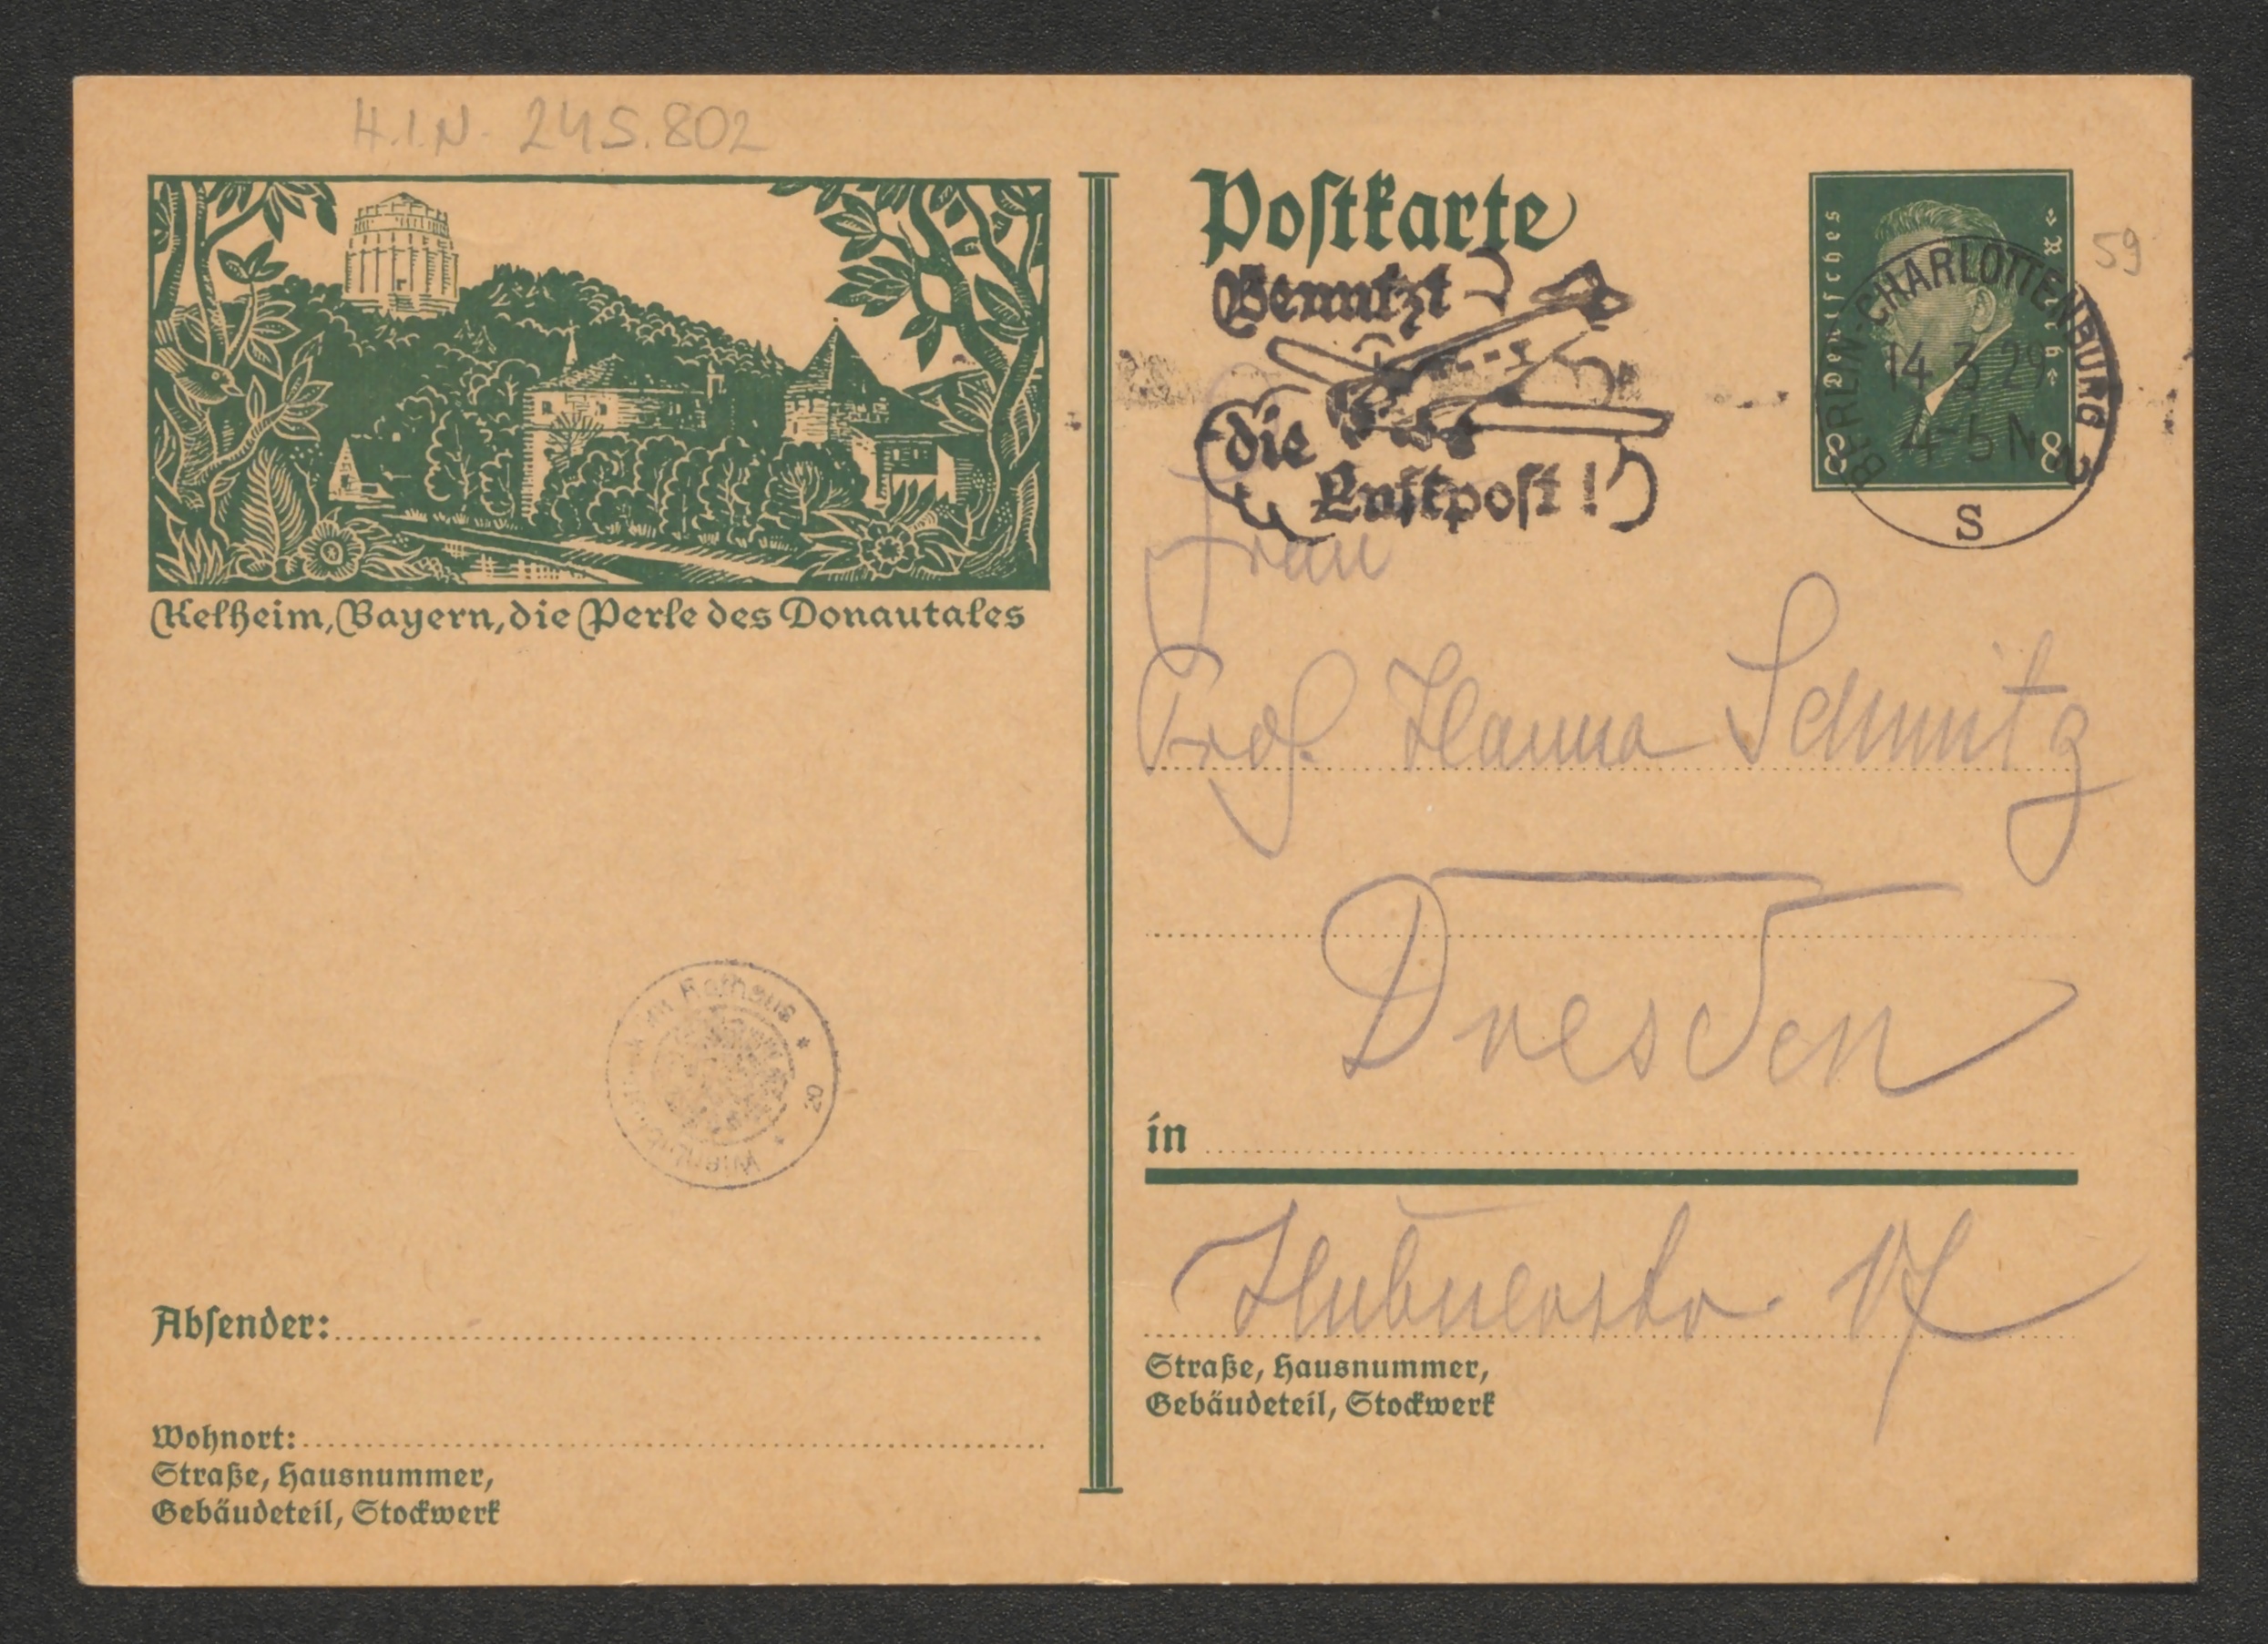 H.I.N. 245.802
Kelheim, Bayern, die Perle des Donautales
Postkarte
Deutsches Reich
8 8
59
Benutzt
die
Luftpost!
BERLIN-CHARLOTTENBURG 2
14.3.29
4-5 N
S
Frau
Prof. Hanna Schmitz
Dresden
in
Hübnerstr. 17
Straße, Hausnummer,
Gebäudeteil, Stockwerk
Rathaus * 20 *
Absender:
Wohnort:
Straße, Hausnummer,
Gebäudeteil, Stockwerk